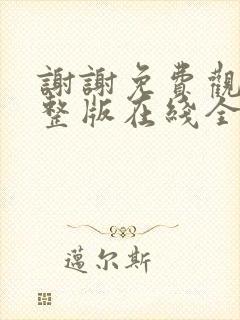 謝謝免費觀
整版在线全
邁尔斯